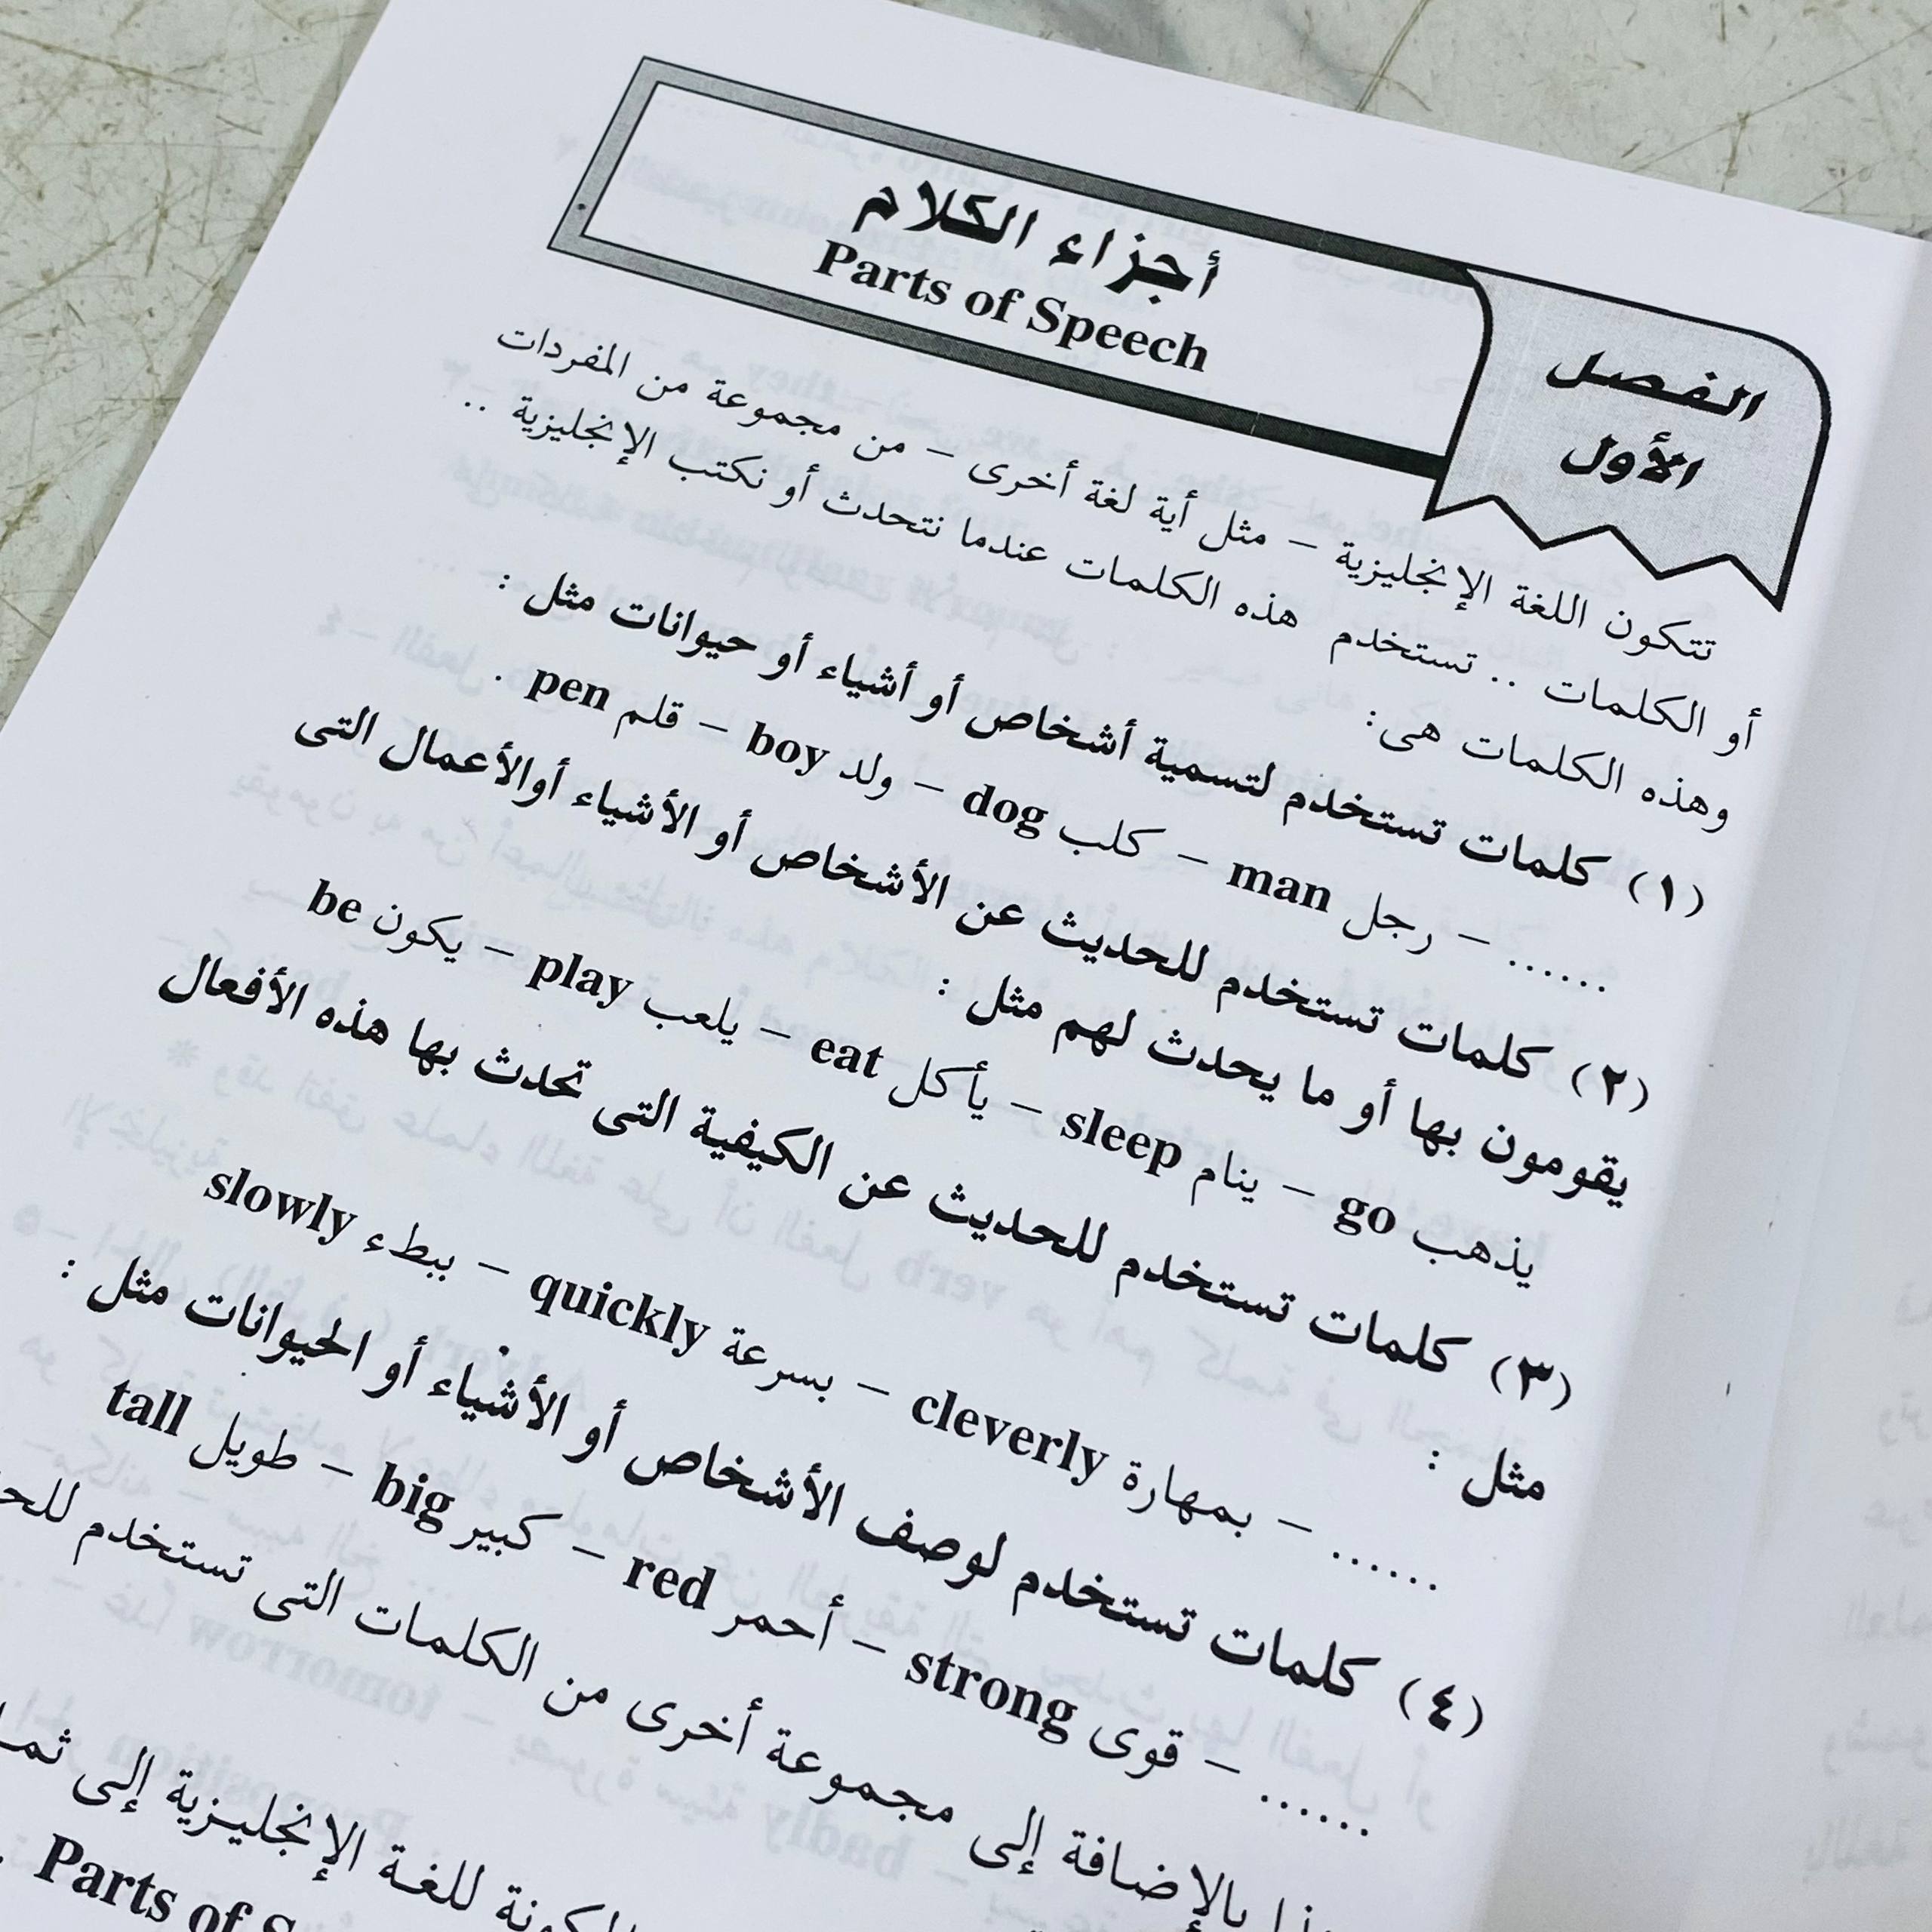 الفصل
الأول
أجزاء الكلام
Parts of Speech
تتكون اللغة الإنجليزية – مثل أية لغة أخرى – من مجموعة من المفردات
أو الكلمات .. تستخدم هذه الكلمات عندما نتحدث أو نكتب الإنجليزية ..
وهذه الكلمات هى:
(١) كلمات تستخدم لتسمية أشخاص أو أشياء أو حيوانات مثل :
...... – رجل man – كلب dog – ولد boy – قلم pen .
(٢) كلمات تستخدم للحديث عن الأشخاص أو الأشياء أوالأعمال التى
يقومون بها أو ما يحدث لهم مثل :
يذهب go – ينام sleep – يأكل eat – يلعب play – يكون be
(٣) كلمات تستخدم للحديث عن الكيفية التى تحدث بها هذه الأفعال
مثل :
...... – بمهارة cleverly – بسرعة quickly – ببطء slowly
(٤) كلمات تستخدم لوصف الأشخاص أو الأشياء أو الحيوانات مثل :
...... – قوى strong – أحمر red – كبير big – طويل tall
بالإضافة إلى مجموعة أخرى من الكلمات التى تستخدم
للغة الإنجليزية إلى
Parts of